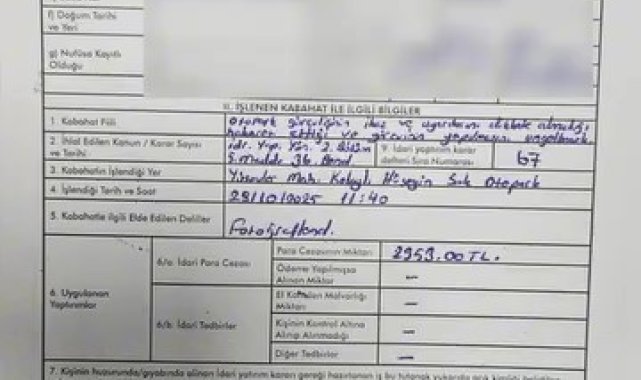 f) Doğum Tarihi
ve Yeri
g) Nüfusa Kayıtlı
Olduğu
II. İŞLENEN KABAHAT İLE İLGİLİ BİLGİLER
1. Kabahat Fiili
Otopark ikaz ve uyarıları dikkate almadığı
hakaret ettiği ve görevini yapmasını engellemek
2. İhlal Edilen Kanun / Karar Sayısı
ve Tarihi
2. Bölüm
5. Madde 36. Bend
9. İdari yaptırım karar
defteri Sıra Numarası
67
3. Kabahatin İşlendiği Yer
Mah. Hüseyin Sok Otopark
4. İşlendiği Tarih ve Saat
29/10/2025 11:40
5. Kabahatle ilgili Elde Edilen Deliller
Fotoğraflandı.
6. Uygulanan
Yaptırımlar
6/a: İdari Para Cezası
Para Cezasının Miktarı
2953.00 TL.
Ödeme Yapılmışsa
Alınan Miktar
—
6/b: İdari Tedbirler
El Konulan Malvarlığı
Miktarı
—
Kişinin Kontrol Altına
Alınıp Alınmadığı
—
Diğer Tedbirler
—
7. Kişinin huzurunda/gıyabında alınan İdari yatırım kararı gereği hazırlanan iş bu tutanak yukarıda açık kimliği